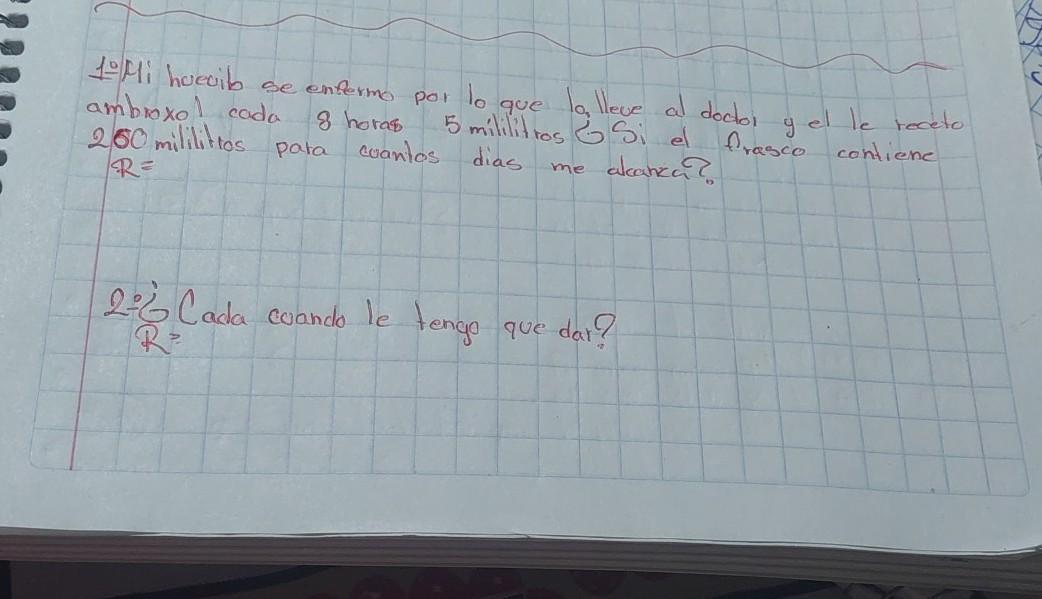 1º Mi hoecib se enfermo por lo que la lleve al doctor y el le receto
ambroxol cada 8 horas 5 mililitros ¿Si el frasco contiene
260 mililitros para cuantos dias me alcanza?
R=
2º ¿Cada cuando le tengo que dar?
R=